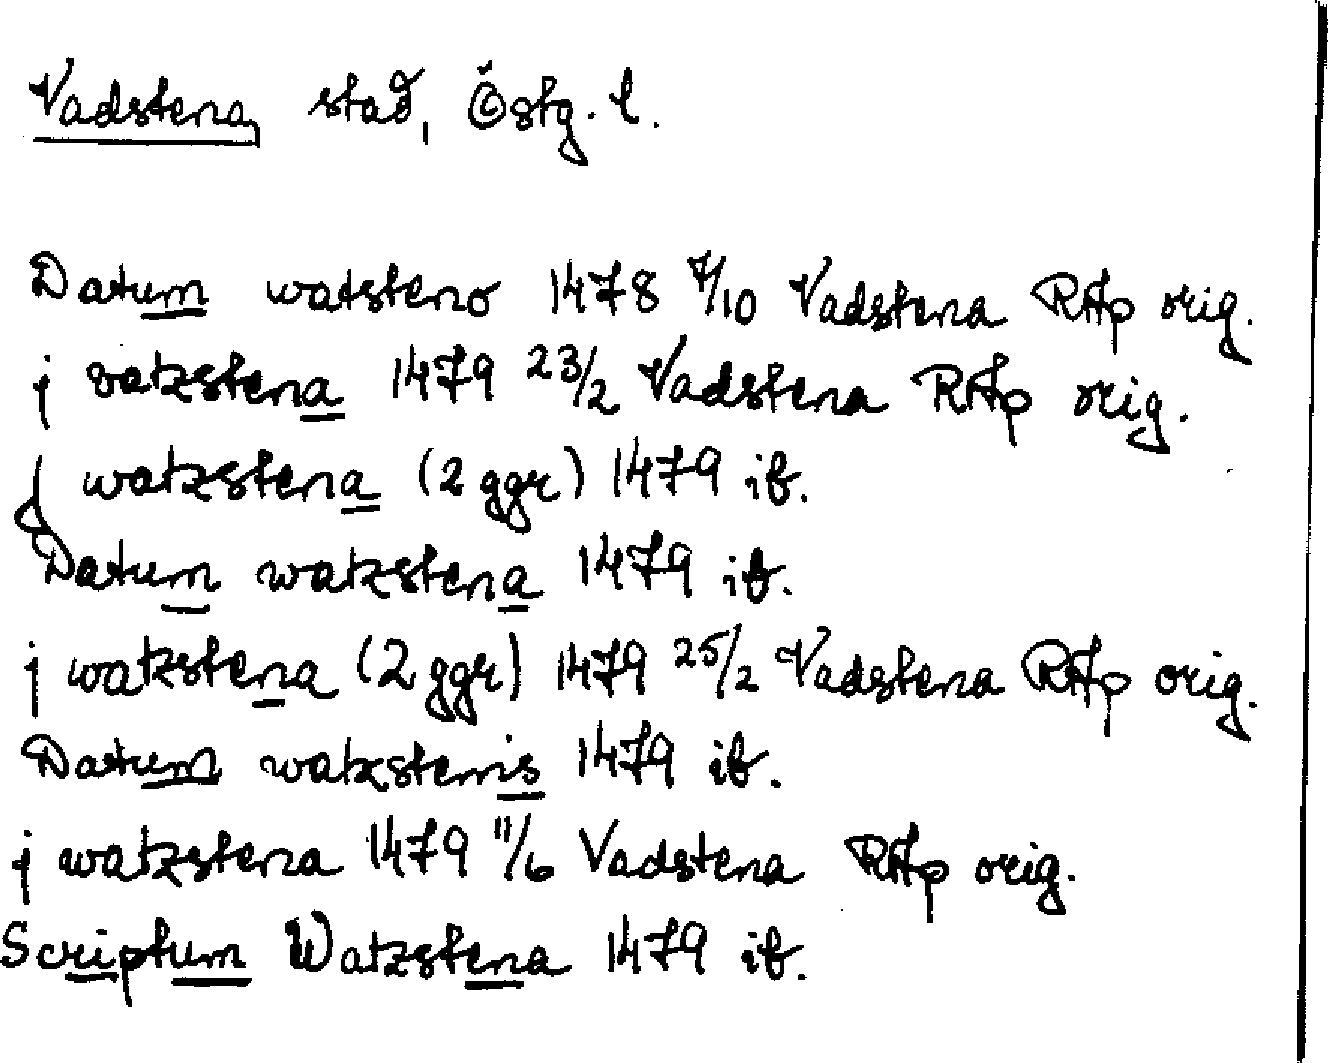 Vadstena, stad, Östg. l.
Datum watsteno 1478 7/10 Vadstena RAp orig.
j vatzstena 1479 23/2 Vadstena RAp orig.
J watzstena (2 ggr) 1479 ib.
Datum watzstena 1479 ib.
j watzstena (2 ggr) 1479 25/2 Vadstena RAp orig.
Datum watzstenis 1479 ib.
j watzstena 1479 11/6 Vadstena RAp orig.
Scriptum Watzstena 1479 ib.